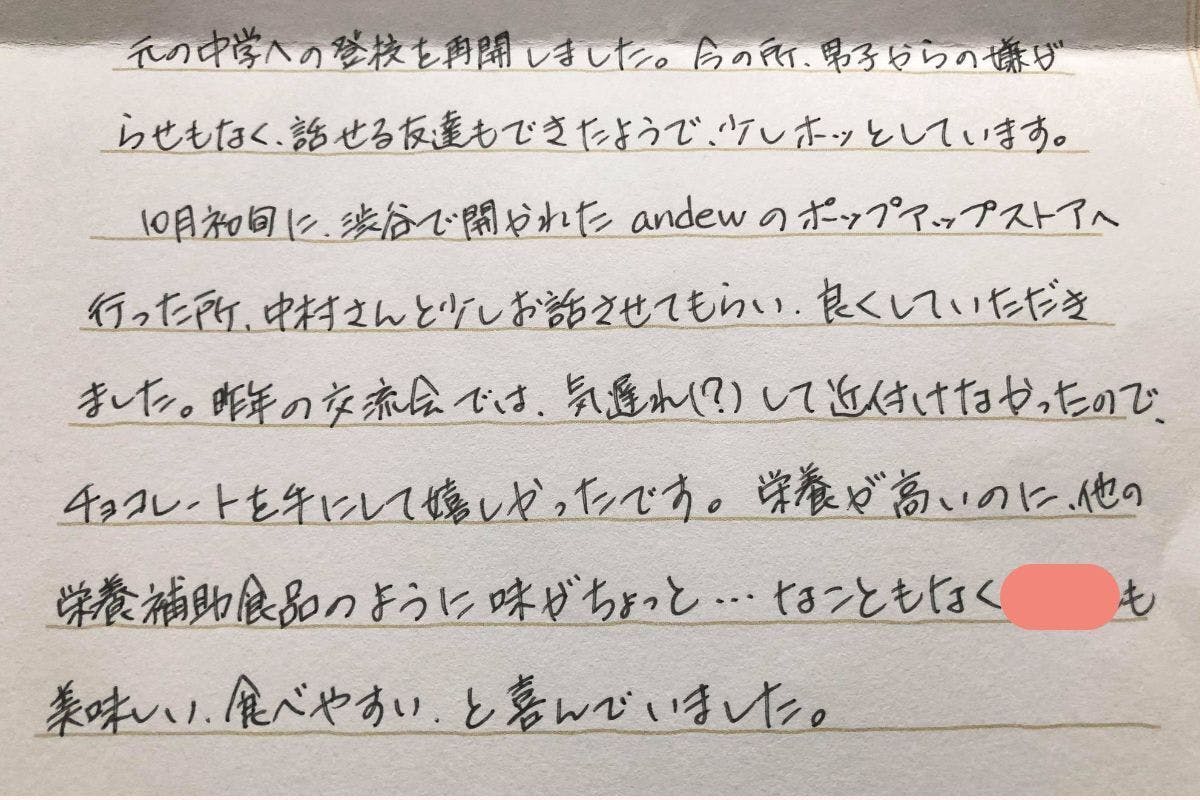 元の中学への登校を再開しました。今の所、男子からの嫌が
らせもなく、話せる友達もできたようで、少しホッとしています。
10月初旬に、渋谷で開かれた andew のポップアップストアへ
行った所、中村さんと少しお話させてもらい、良くしていただき
ました。昨年の交流会では、気遅れ(?)して近付けなかったので、
チョコレートを手にして嬉しかったです。栄養が高いのに、他の
栄養補助食品のように味がちょっと…なこともなく も
美味しい、食べやすい、と喜んでいました。